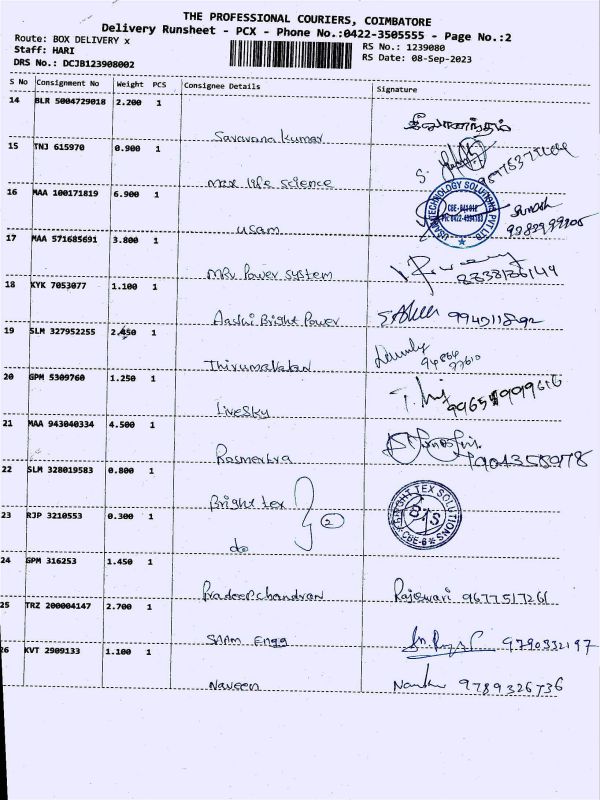 THE PROFESSIONAL COURIERS, COIMBATORE
Delivery Runsheet - PCX - Phone No.:0422-3505555 - Page No.:2
Route: BOX DELIVERY x
RS No.: 1239080
Staff: HARI
RS Date: 08-Sep-2023
DRS No.: DCJB123908002
S No Consignment No Weight PCS Consignee Details Signature
14 BLR 5004729018 2.200 1
Saravana Kumar
15 TNJ 615970 0.900 1
max life science
16 MAA 100171819 6.900 1
usam
17 MAA 571685691 3.800 1
MRV Power System
18 KYK 7053077 1.100 1
Aashi Bright Power
19 SLM 327952255 2.450 1
Thirumalatan
20 GPM 5309760 1.250 1
LiveSky
21 MAA 943040334 4.500 1
Rosmertra
22 SLM 328019583 0.800 1
Bright tex 2
BRIGHT TEX SOLUTIONS
BTS
23 RJP 3210553 0.300 1
do
24 GPM 316253 1.450 1
Pradeep chandran Rajeswari 9677517261
25 TRZ 200004147 2.700 1
SAAM Engg 9790332197
26 KVT 2909133 1.100 1
Naveen 9789326736